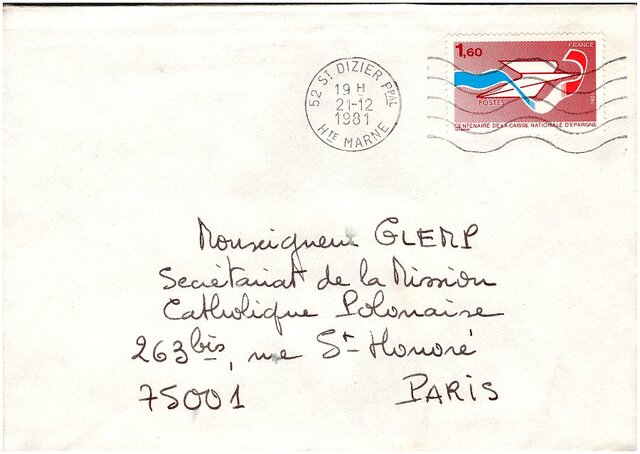 52 ST DIZIER PPAL
19 H
21-12
1981
HTE MARNE
1,60
FRANCE
POSTES
CENTENAIRE DE LA CAISSE NATIONALE D'EPARGNE
Monseigneur GLEMP
Secrétariat de la Mission
Catholique Polonaise
263bis, rue St-Honoré
75001 PARIS